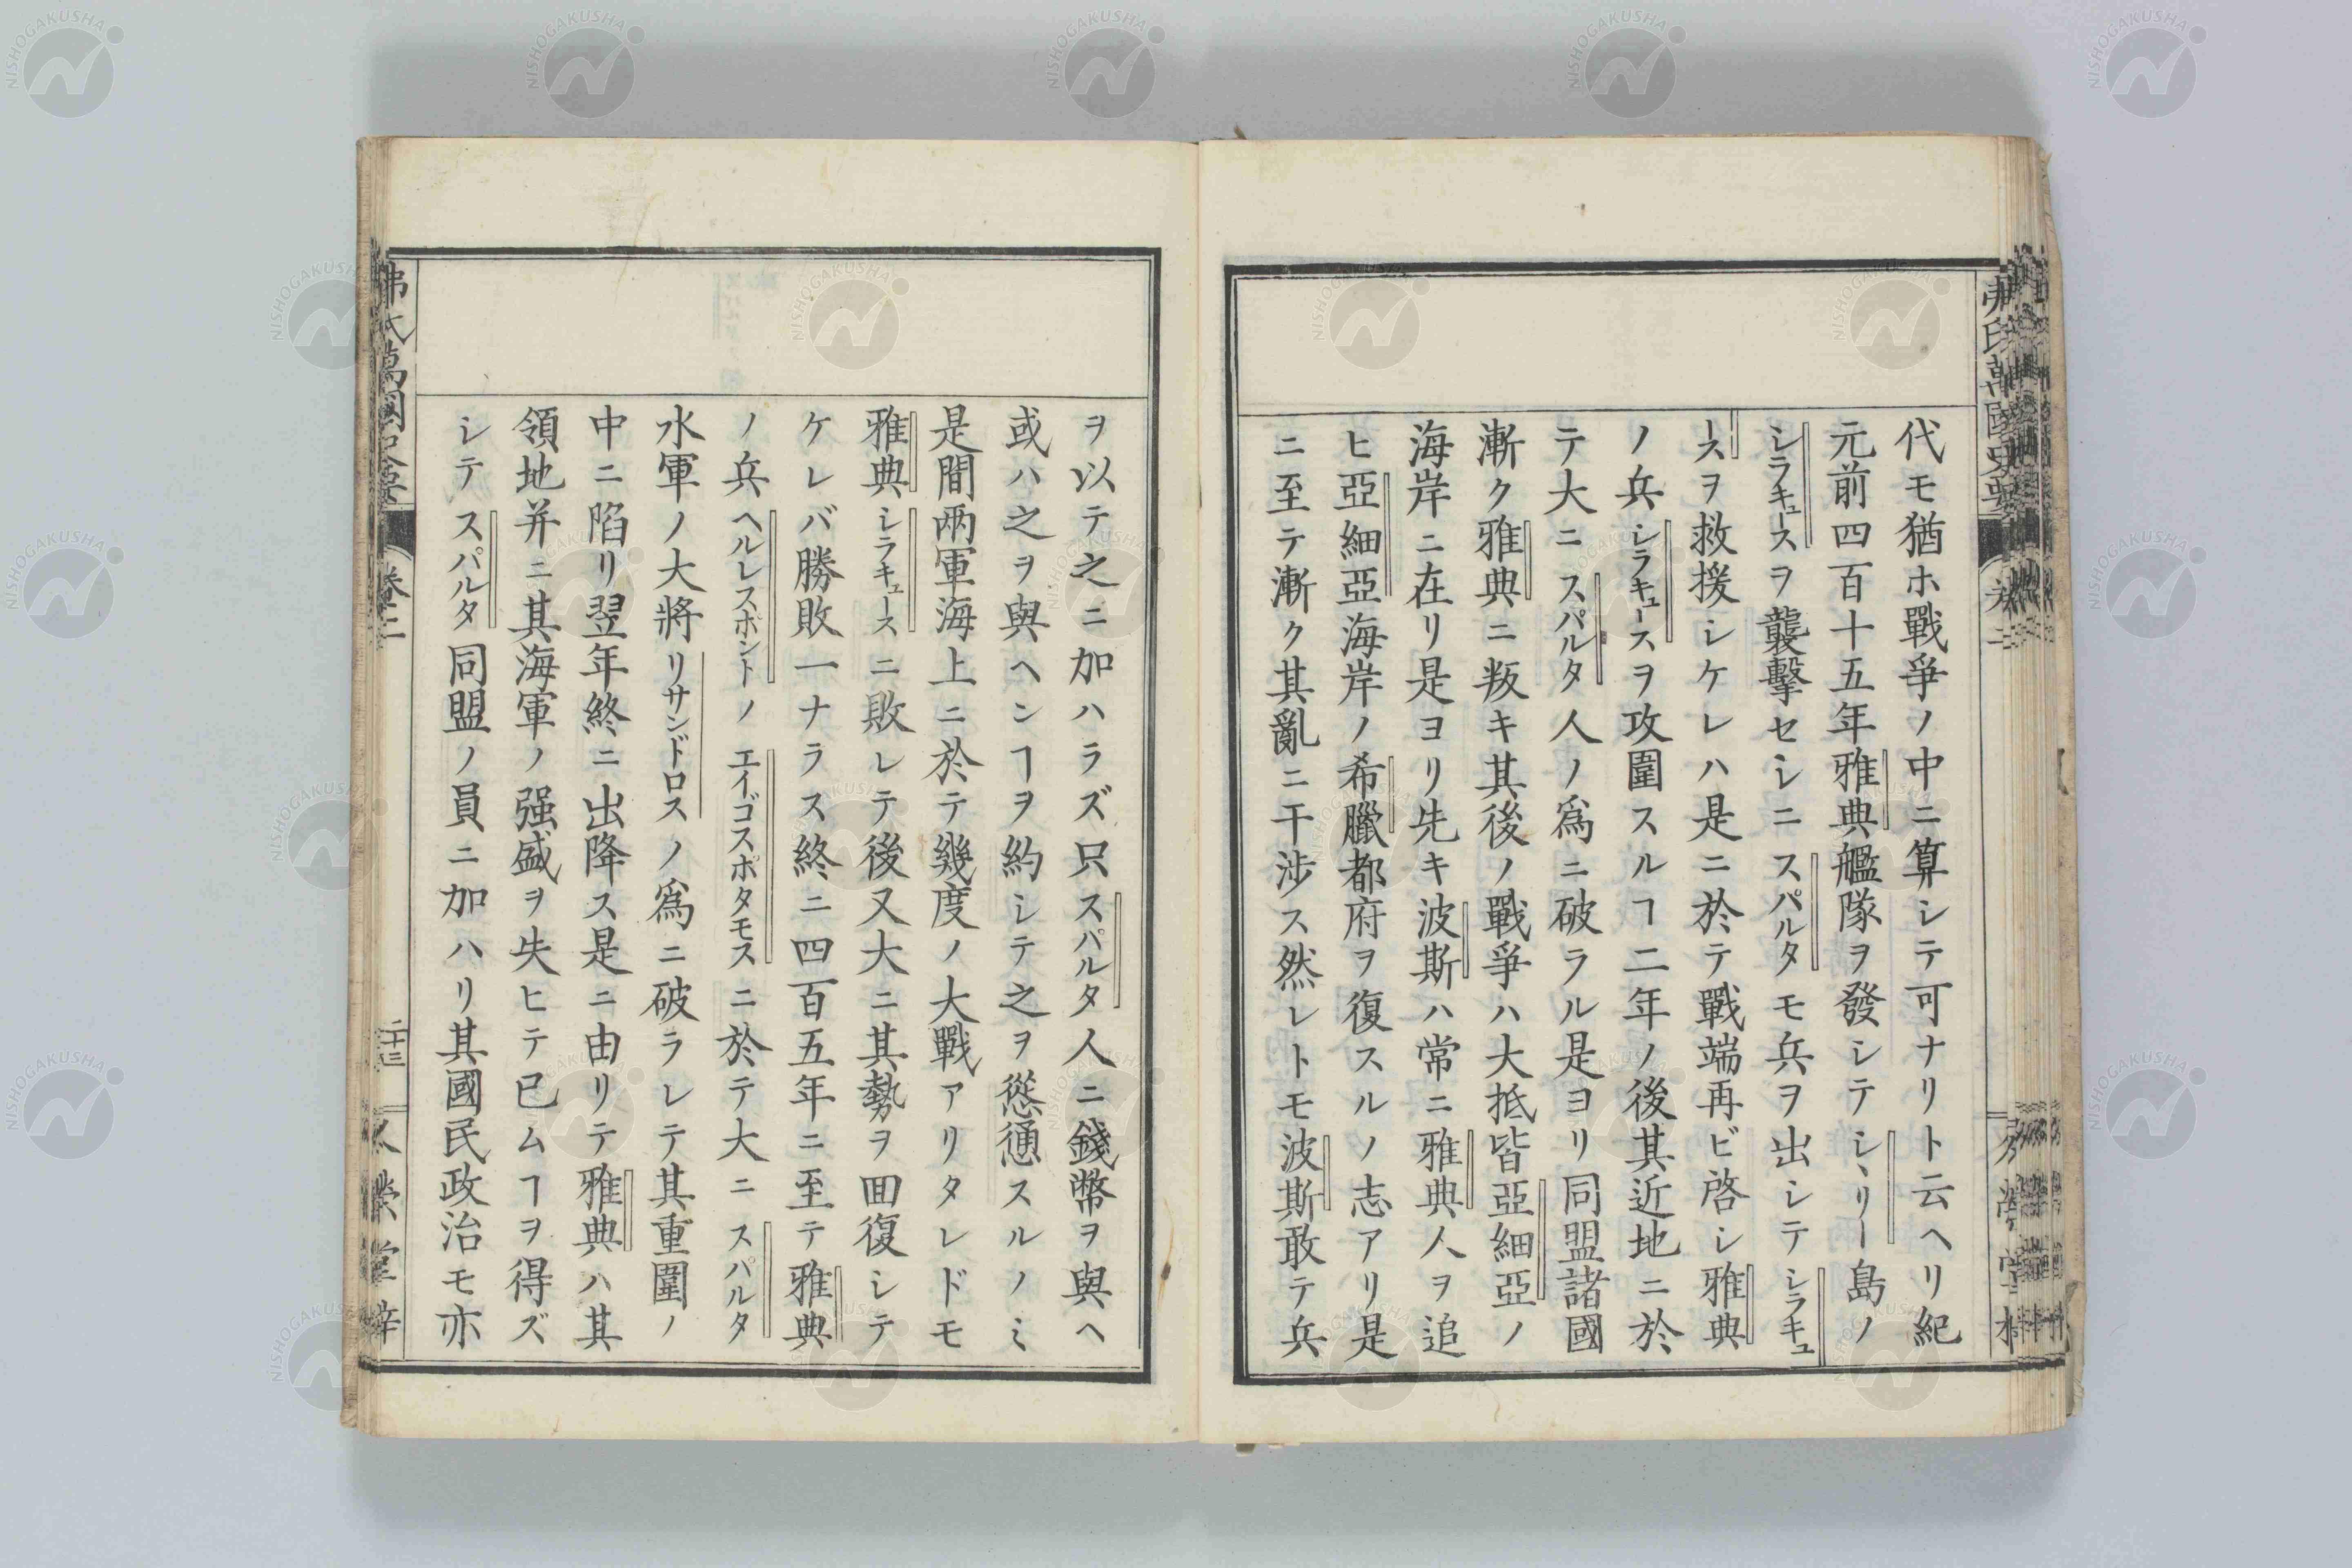 代モ猶ホ戰爭ノ中ニ算シテ可ナリト云ヘリ紀
元前四百十五年雅典艦隊ヲ發シテシヽリー島ノ
シラキュースヲ襲擊セシニスパルタモ兵ヲ出シテシラキュ
ースヲ救援シケレハ是ニ於テ戰端再ビ啓シ雅典
ノ兵シラキュースヲ攻圍スルヿ二年ノ後其近地ニ於
テ大ニスパルタ人ノ爲ニ破ラル是ヨリ同盟諸國
漸ク雅典ニ叛キ其後ノ戰爭ハ大抵皆亞細亞ノ
海岸ニ在リ是ヨリ先キ波斯ハ常ニ雅典人ヲ追
ヒ亞細亞海岸ノ希臘都府ヲ復スルノ志アリ是
ニ至テ漸ク其亂ニ干涉ス然レトモ波斯敢テ兵
ヲ以テ之ニ加ハラズ只スパルタ人ニ錢幣ヲ與ヘ
或ハ之ヲ與ヘンヿヲ約シテ之ヲ慫慂スルノミ
是間兩軍海上ニ於テ幾度ノ大戰アリタレドモ
雅典シラキュースニ敗レテ後又大ニ其勢ヲ囬復シテ
ケレバ勝敗一ナラス終ニ四百五年ニ至テ雅典
ノ兵ヘルレスポントノエイゴスポタモスニ於テ大ニスパルタ
水軍ノ大將リサンドロスノ爲ニ破ラレテ其重圍ノ
中ニ陷リ翌年終ニ出降ス是ニ由リテ雅典ハ其
領地并ニ其海軍ノ强盛ヲ失ヒテ已ムヿヲ得ズ
シテスパルタ同盟ノ員ニ加ハリ其國民政治モ亦
弗氏萬國史要
卷二
二十三
NISHOGAKUSHA